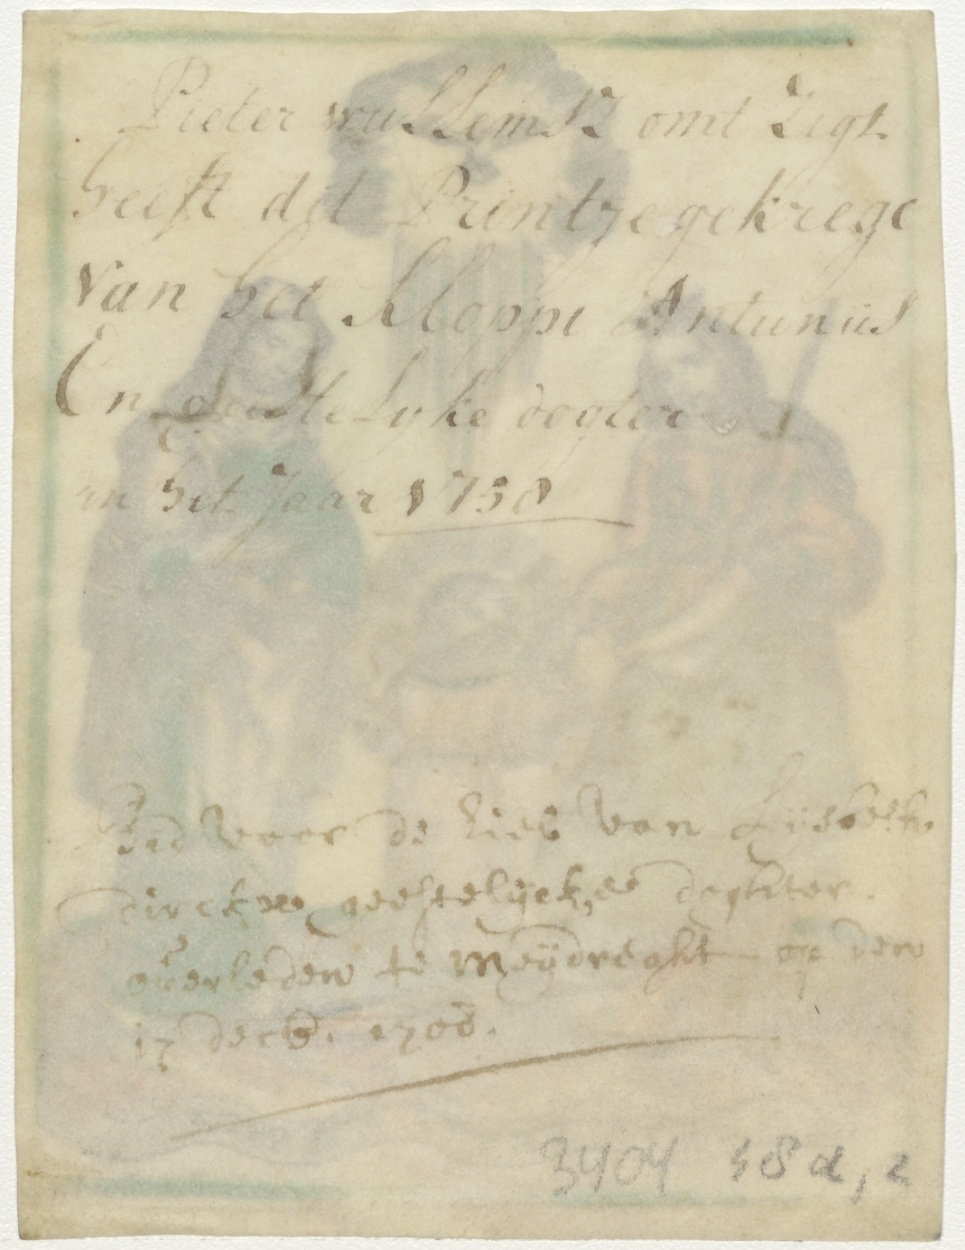 Pieter willemsz omt Zigt
heeft dit Printze gekrege
van het kloppe Antunijs
En geestelyke dogter
in het Jaar 1758
Bid voor de ziel van Lijsbeth
dircks geestelijcke doghter.
overleden te Meijdreght op den
17 decb. 1708.
3404 18 d, 2